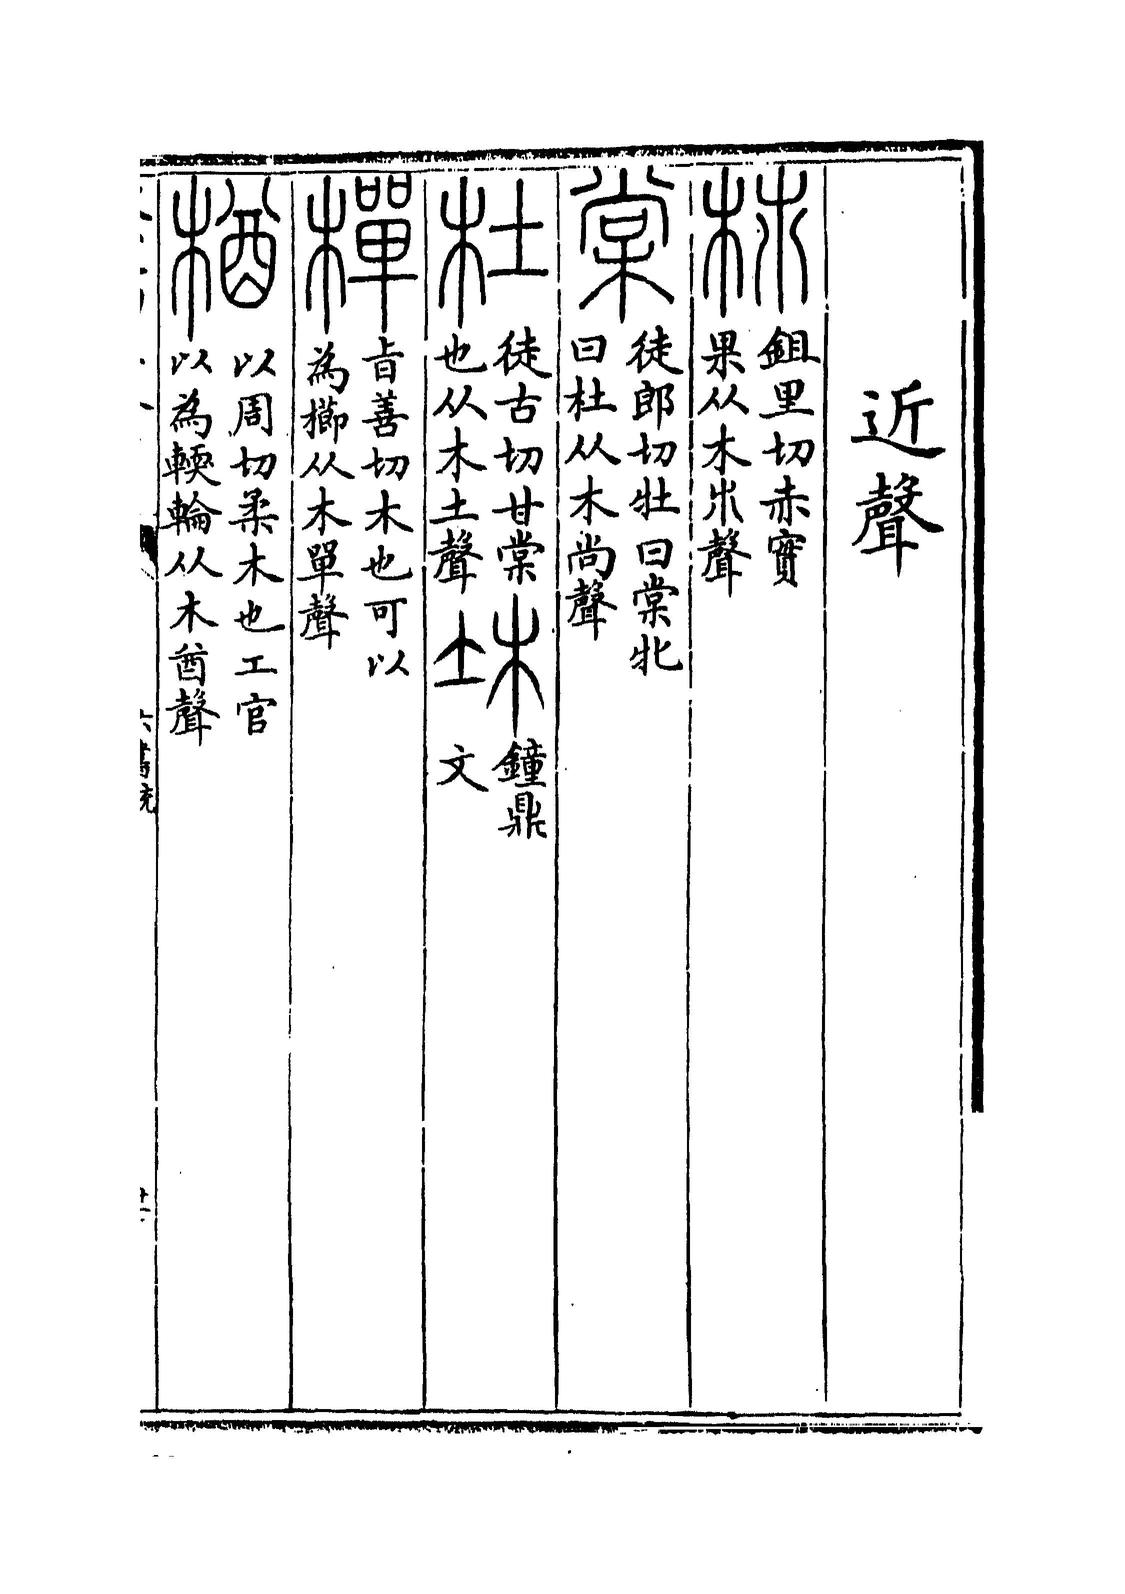 近聲
柹
鉏里切赤實
果从木𠂔聲
棠
徒郎切牡曰棠牝
曰杜从木尚聲
杜
徒古切甘棠
也从木土聲
杜
鐘鼎
文
樿
旨善切木也可以
為櫛从木單聲
楢
以周切柔木也工官
以為輭輪从木酋聲
六書統